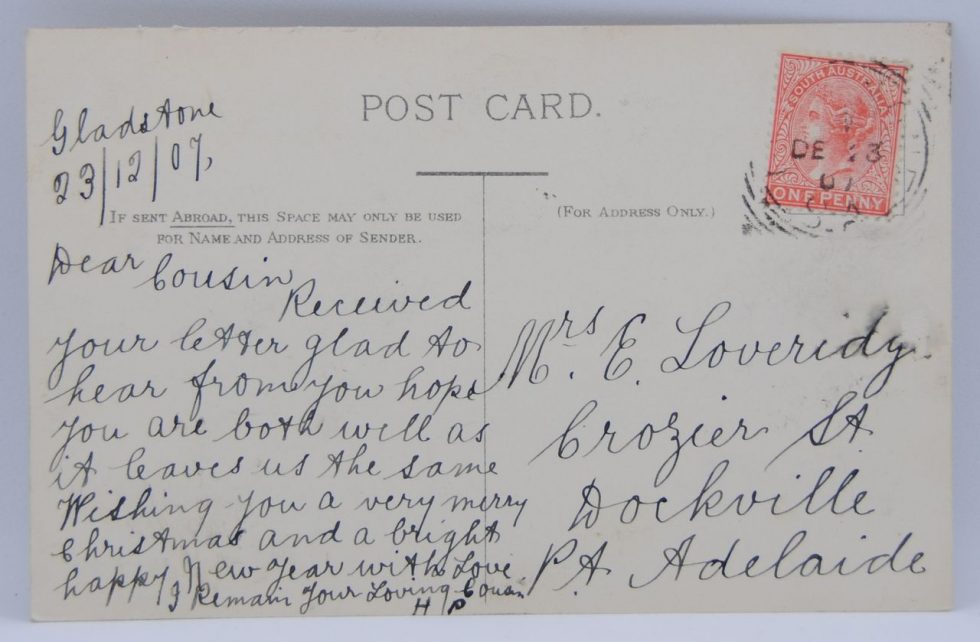 POST CARD.
SOUTH AUSTRALIA
DE 23
07
ONE PENNY
Gladstone
23/12/07,
IF SENT ABROAD, THIS SPACE MAY ONLY BE USED
FOR NAME AND ADDRESS OF SENDER.
(FOR ADDRESS ONLY.)
Dear Cousin
Received
your letter glad to
hear from you hope
you are both well as
it leaves us the same
Wishing you a very merry
Christmas and a bright
happy New Year with Love
I Remain Your Loving Cousin
H P
Mrs. E. Loveridy.
Crozier St
Dockville
P.A. Adelaide